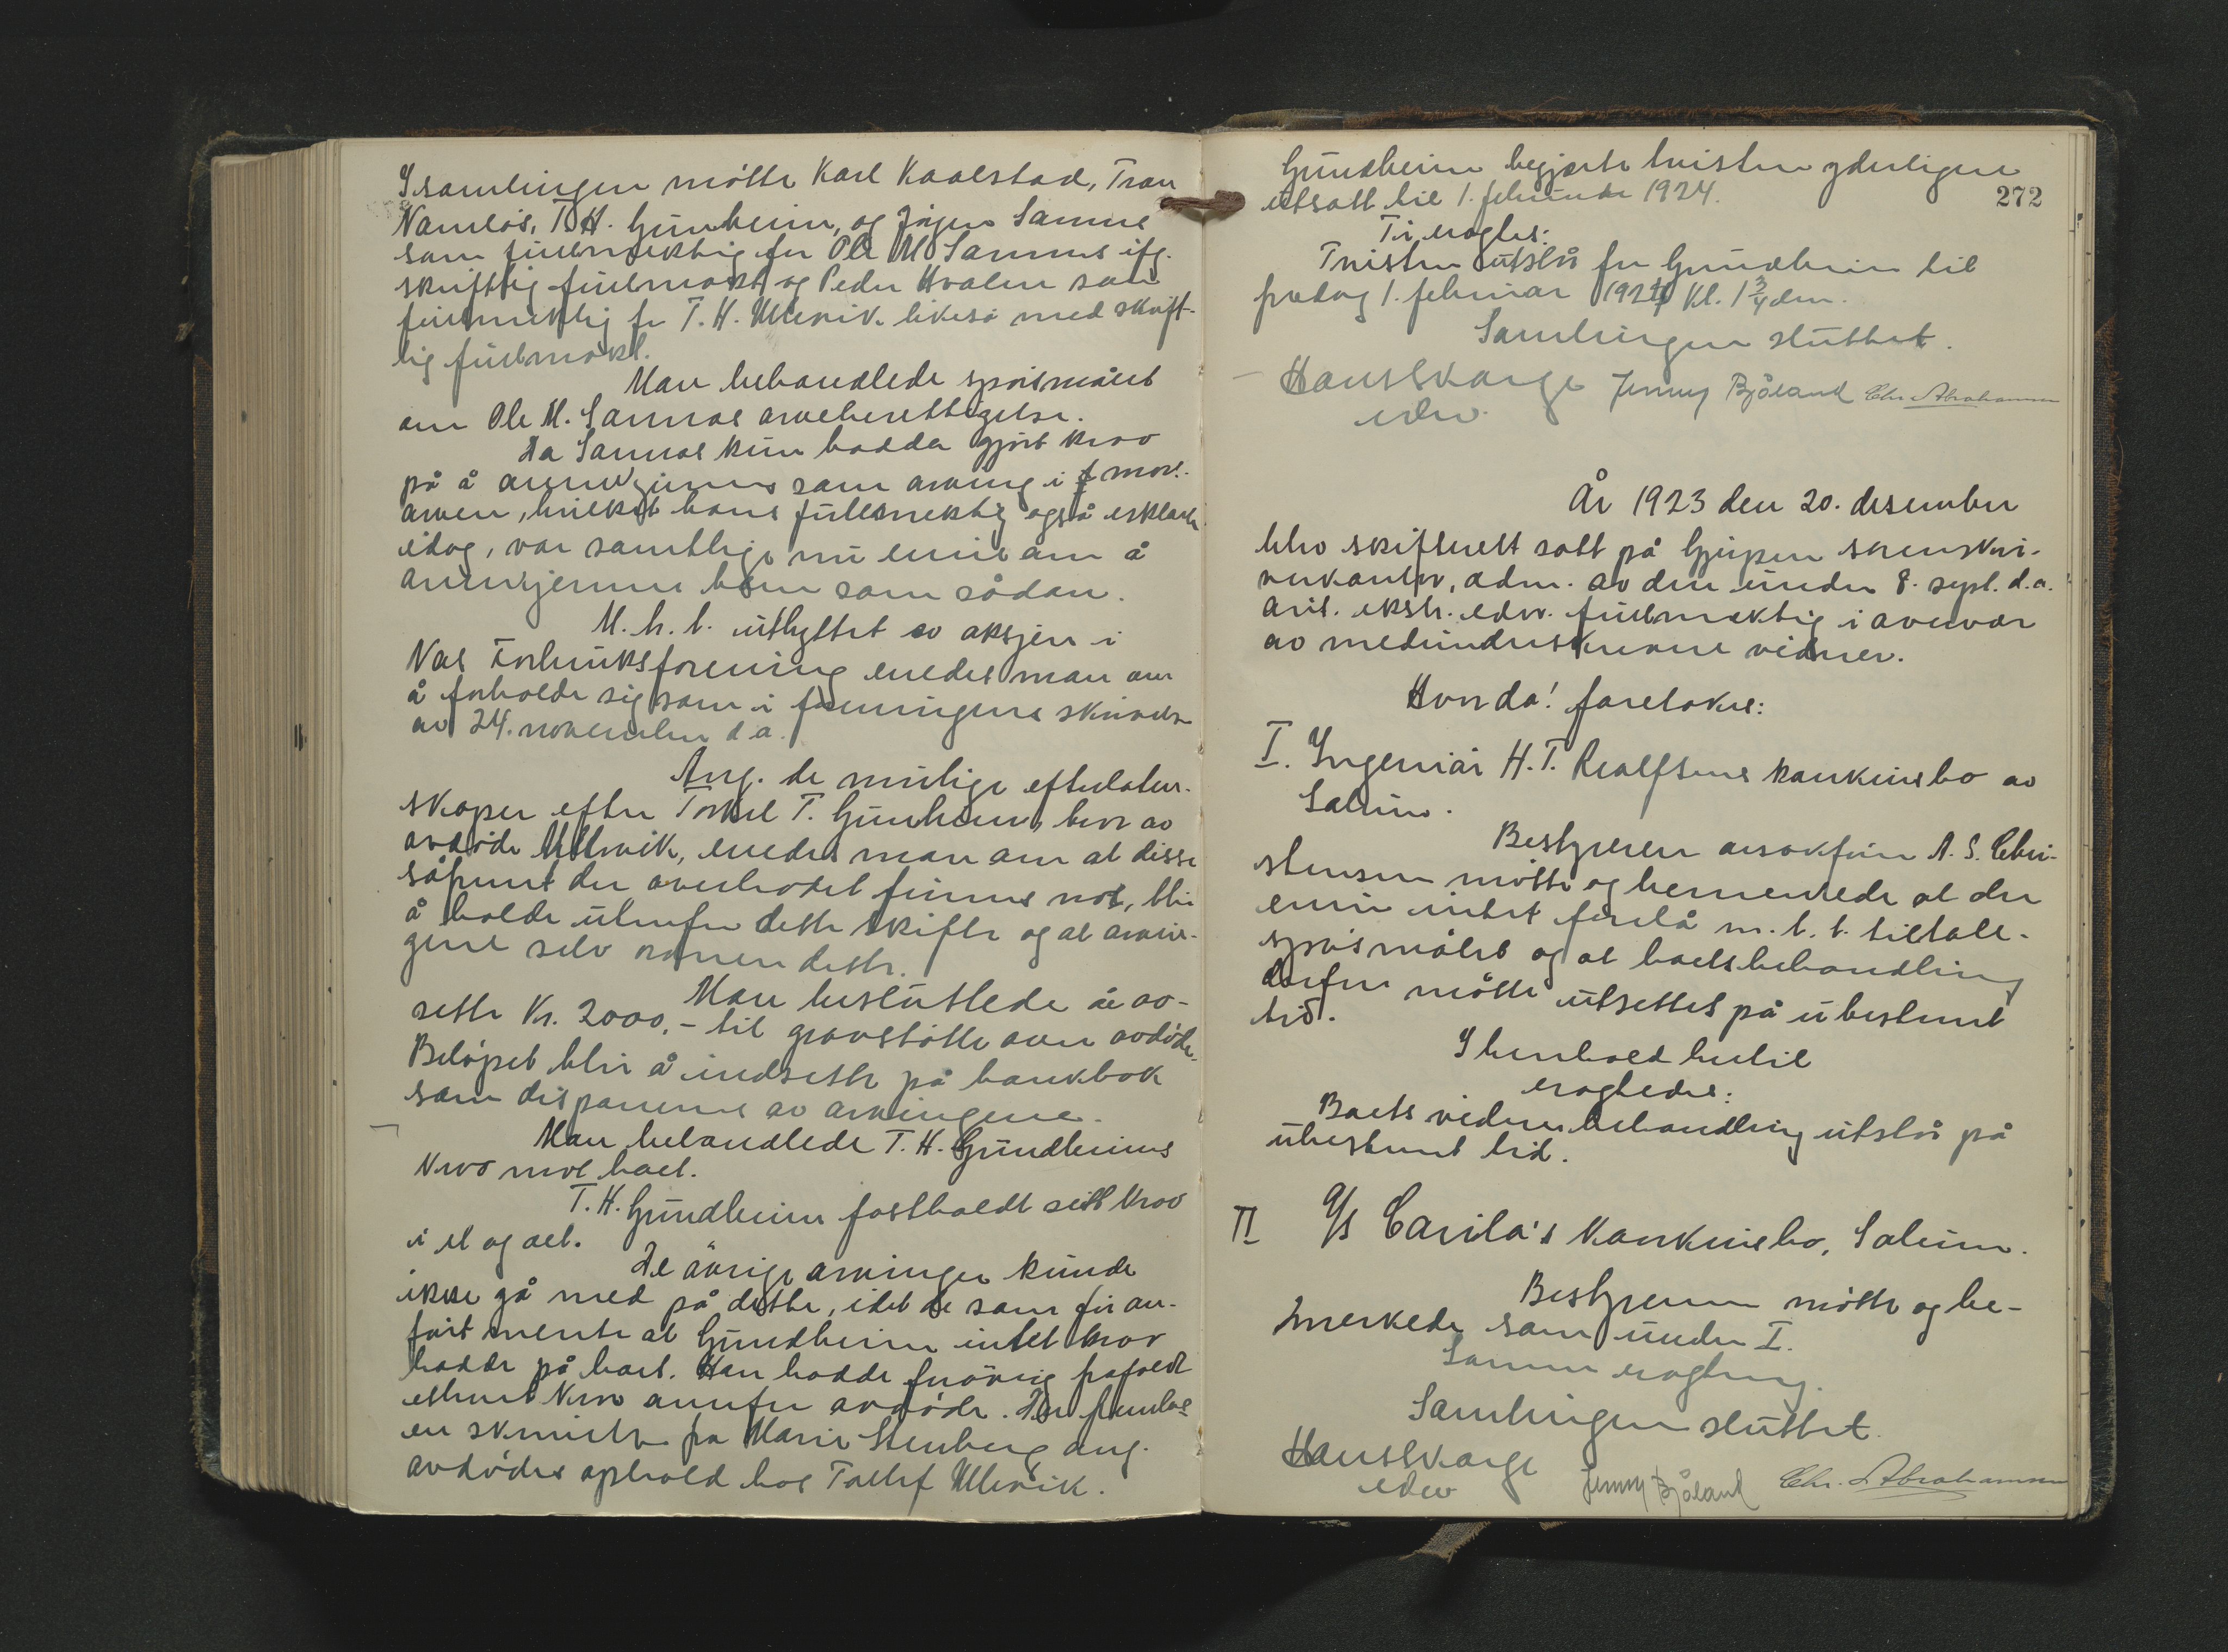 I samlingen møtte Karl Kaalstad, Tron
Namløs, T. H. Gunheim, og Jørgen Sannes
som fullmektig for Ole M. Sannes ifg.
skriftlig fullmakt og Peder Hvalen som
fullmektig for T. H. Ullervik likeså med skrift-
lig fullmakt.
Man behandlede spørsmålet
om Ole M. Sannes arveberettigelse.
Da Sannes kun hadde gjort krav
på å annerkjennes som arving i mors-
arven, hvilket hans fullmektig også erklærte
idag, var samtlige nu enige om å
annerkjenne ham som sådan.
M. h. t. utbyttet av aksjen i
Nes Forbruksforening enedes man om
å forholde sig som i foreningens skrivelse
av 24. november d.a.
Ang. de mulige efterlaten-
skaper efter Torkel T. Gunheim, bror av
avdøde Ullervik, enedes man om at disse
såfremt der overhodet finnes noe, blir
å holde utenfor dette skifte og at arvin-
gene selv ordner dette.
Man besluttede å av-
sette Kr. 2000,- til gravstøtte over avdøde.
Beløpet blir å indsette på bankbok
som disponeres av arvingene.
Man behandlede T. H. Gundheims
krav mot boet.
T. H. Gundheim fastholdt sitt krav
i et og alt.
De øvrige arvinger kunde
ikke gå med på dette, idet de som før an-
ført mente at Gundheim intet krav
hadde på boet. Han hadde forøvrig frafaldt
ethvert krav overfor avdøde. Der fremlaes
en skrivelse fra Marie Stenberg ang.
avdødes ophold hos Tollef Ullerik.
Gundheim begjærte tvisten yderligere
272
utsatt til 1. februar 1924.
Ti vragtes:
Tvisten utstår for Gundheim til
fredag 1. februar 1924 kl. 1 3/4 em.
Samlingen sluttet.
Hans Skarge Jenny Bjåland Chr. Abrahamsen
edsv.
År 1923 den 20. desember
blev skifterett satt på Gjerpen sorenskri-
verkontor, adm. av den under 8. sept. d.a.
aut. ekstr. edsv. fullmektig i overvær
av medunderskrevne vidner.
Hvor da! foretokes:
I. Ingeniør H. T. Realfsens konkursbo av
Solum.
Bestyreren o.r.sakfører A. S. Chri-
stensen møtte og bemerkede at der
ennu intet forelå m. h. t. tiltale-
spørsmålet og at boets behandling
derfor måtte utsettes på ubestemt
tid.
I henhold hertil
eragtedes:
Boets videre behandling utstår på
ubestemt tid.
II A/S Carila's konkursbo, Solum.
Bestyreren møtte og be-
merkede som under I.
Samme eragtning.
Samlingen sluttet.
Hans Skarge Jenny Bjåland Chr. Abrahamsen
edsv